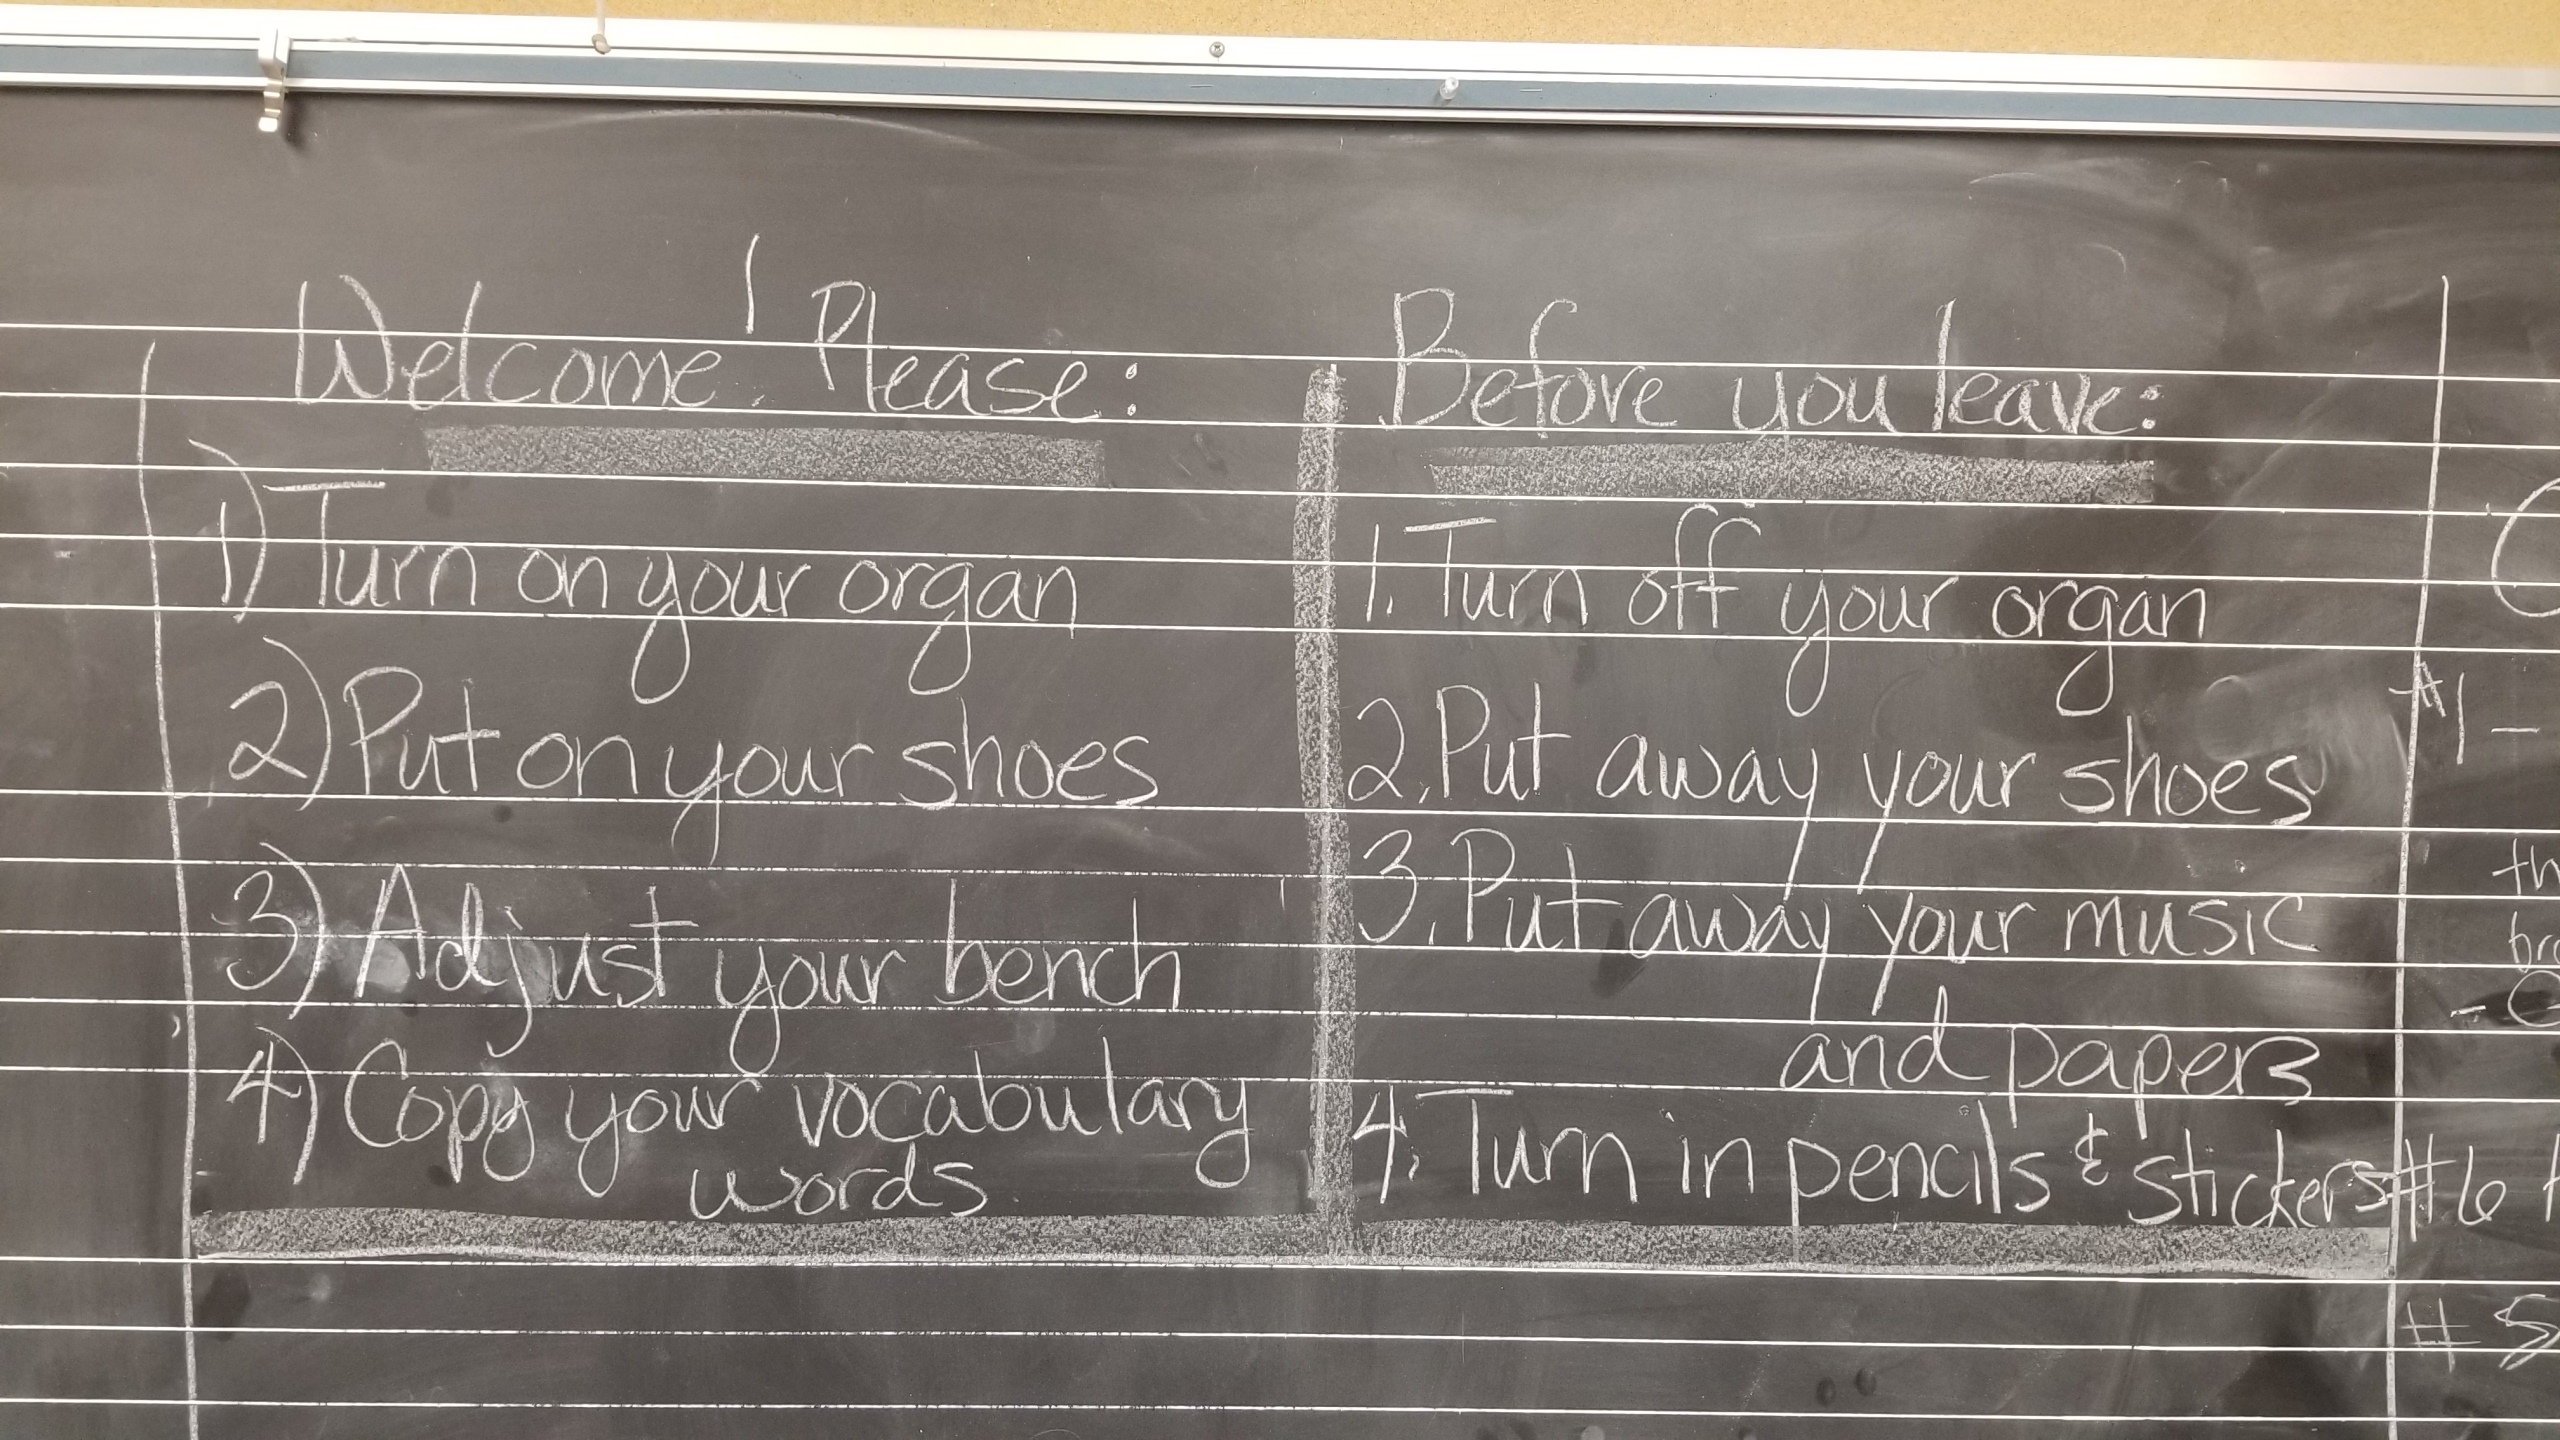 Welcome! Please:
1) Turn on your organ
2) Put on your shoes
3) Adjust your bench
4) Copy your vocabulary
words
Before you leave:
1. Turn off your organ
2. Put away your shoes
3. Put away your music
and papers
4. Turn in pencils & stickers
#1 -
#6
# 5